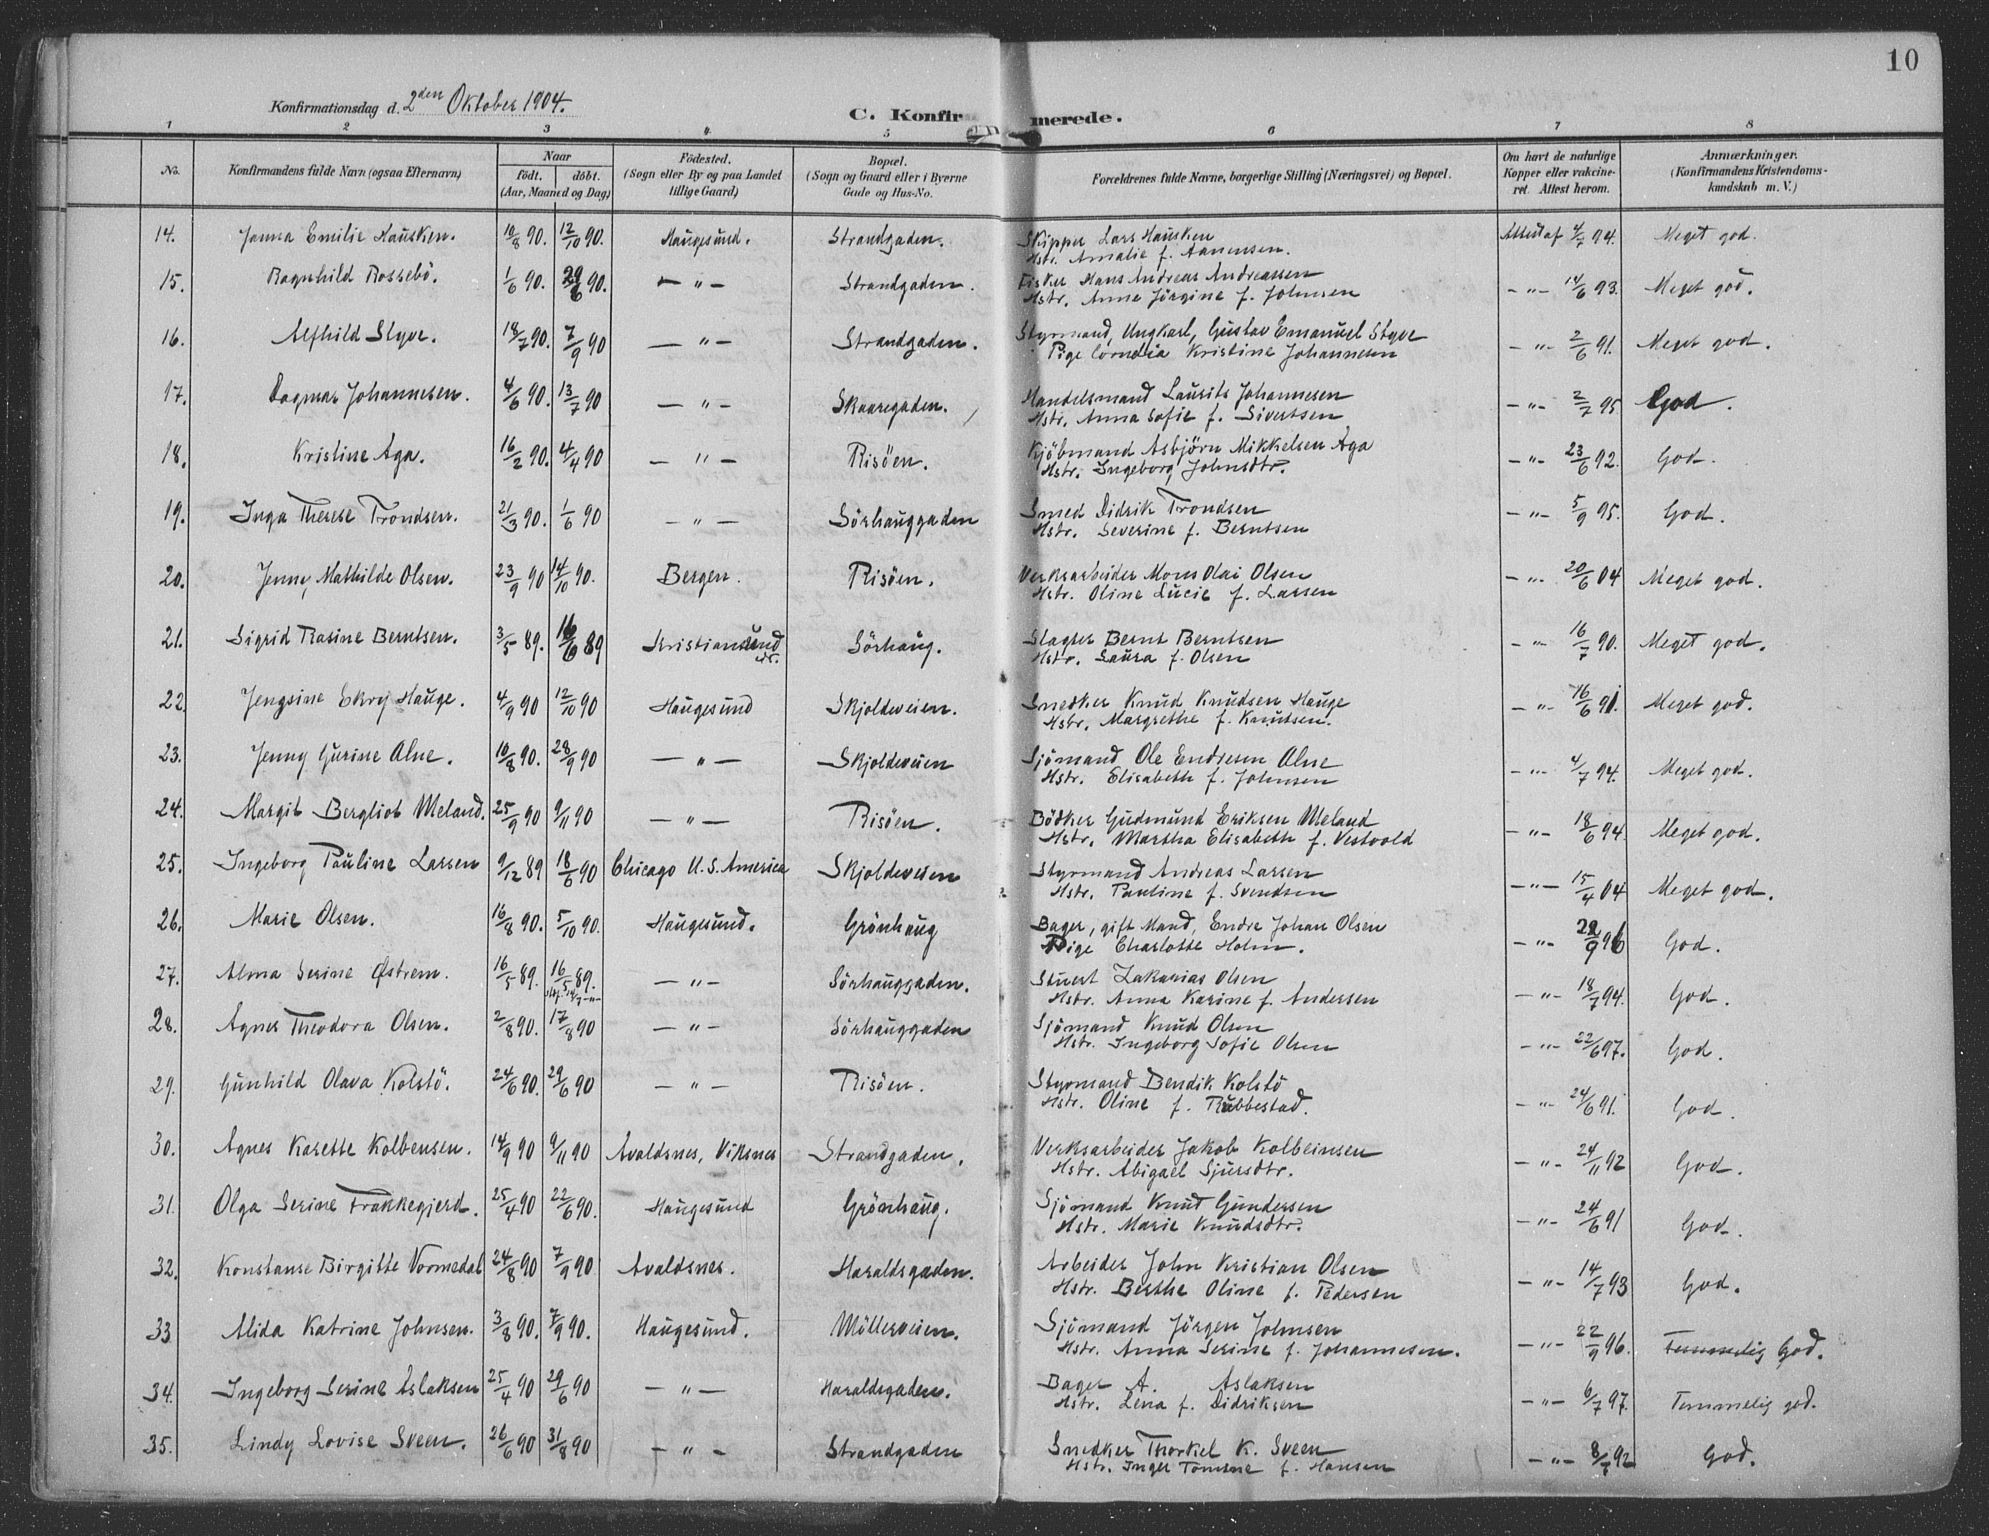 10
Konfirmationsdag d. 2den Oktober 1904.
C. Konfirmerede.
1 2 3 4 5 6 7 8
No. Konfirmandens fulde Navn (ogsaa Efternavn) Naar födt. döbt. (Aar, Maaned og Dag) Födested. (Sogn eller By og paa Landet tillige Gaard) Bopæl. (Sogn og Gaard eller i Byerne Gade og Hus-No. Forældrenes fulde Navne, borgerlige Stilling (Næringsvei) og Bopæl. Om havt de naturlige Kopper eller vakcineret. Attest herom. Anmærkninger. (Konfirmandens Kristendomskundskab m. V.)
14. Janna Emilie Hausken. 10/8 90. 12/10 90. Haugesund. Strandgaden. Skipper Lars Hausken Attest af 4/7 94. Meget god.
Hstr. Amalie f. Aanensen.
15. Ragnhild Rossebö. 1/6 90. 29/6 90. — " — Strandgaden. Fisker Hans Andreas Andreassen — " — 14/6 93. Meget god.
Hstr. Anne Jörgine f. Johnsen
16. Alfhild Styve. 18/7 90. 7/9 90 — " — Strandgaden. Styrmand, Ungkarl, Gustav Emanuel Styve — " — 2/6 91. Meget god.
Pige Cornelia Kristine Johannesen
17. Dagmar Johannesen. 4/6 90. 13/7 90 — " — Skaaregaden. Handelsmand Laurits Johannesen — " — 2/7 95 God.
Hstr. Anna Sofie f. Sivertsen
18. Kristine Aga. 16/2 90. 4/4 90 — " — Risöen. Kjöbmand Asbjörn Mikkelsen Aga — " — 23/6 92. God.
Hstr. Ingeborg Johnsdtr.
19. Inga Therese Trondsen. 21/3 90. 1/6 90 — " — Sörhauggaden Smed Didrik Trondsen — " — 5/9 95. God.
Hstr. Severine f. Berntsen
20. Jenny Mathilde Olsen. 23/9 90 14/10 90. Bergen. Risöen. Verksarbeider Mons Olai Olsen — " — 20/6 04 Meget god.
Hstr. Oline Lucie f. Larsen
21. Sigrid Rasine Berntsen. 3/5 89. 16/6 89 Kristiansund Sörhaug. Slagter Bernt Berntsen — " — 16/7 90. Meget god.
Hstr. Laura f. Olsen
22 Jengsine Ekry Hauge. 4/9 90 12/10 90 Haugesund Skjoldeveien. Snedker Knud Knudsen Hauge — " — 16/6 91. Meget god.
Hstr. Margrethe f. Knutsen.
23. Jenny Gurine Alne. 10/8 90. 28/9 90 — " — Skjoldeveien Sjömand Ole Endresen Alne — " — 4/7 94. Meget god.
Hstr. Elisabeth f. Johnsen
24. Margit Bergliot Meland. 25/9 90 9/11 90 — " — Risöen. Bödker Gudmund Eriksen Meland — " — 18/6 94. Meget god.
Hstr. Martha Elisabeth f. Vestvold
25. Ingeborg Pauline Larsen 9/12 89 18/6 90 Chicago U. S. America Skjoldeveien Styrmand Andreas Larsen — " — 15/4 04 Meget god.
Hstr. Pauline f. Svendsen
26. Marie Olsen. 16/8 90. 5/10 90. Haugesund. Grönhaug Bager, gift Mand, Endre Johan Olsen — " — 22/9 96 God.
Pige Charlotte Holm.
27. Alma Serine Østrem. 16/5 89. 16/5 89. — " — Sörhauggaden. Stuert Zakarias Olsen — " — 18/7 94. God.
Hstr. Anna Karine f. Andersen
28. Agnes Theodora Olsen. 2/8 90. 17/8 90 — " — Sörhauggaden Sjömand Knud Olsen — " — 22/6 97. God.
Hstr. Ingeborg Sofie Olsen
29. Gunhild Olava Kolstö. 24/6 90. 29/6 90 — " — Risöen. Styrmand Bendik Kolstö — " — 24/6 91. God.
Hstr. Oline f. Rubbestad.
30. Agnes Karette Kolbensen. 14/9 90 9/11 90 Avaldsnes, Viksnes Strandgaden. Verksarbeider Jakob Kolbeinsen — " — 24/11 92 God.
Hstr. Abigael Sjursdtr.
31. Olga Serine Frakkegjerd. 25/4 90 22/6 90. Haugesund Grönhaug. Sjömand Knut Gundersen — " — 24/6 91 God.
Hstr. Marie Knudsdtr.
32. Konstanse Birgitte Vormedal 24/8 90 7/9 90 Avaldsnes. Haraldsgaden. Arbeider John Kristian Olsen — " — 14/7 93 God.
Hstr. Berthe Oline f. Pedersen
33 Alida Katrine Johnsen. 3/8 90. 7/9 90. Haugesund. Möllerveien. Sjömand Jörgen Johnsen — " — 22/9 96. Temmelig God.
Hstr. Anna Serine f. Johannesen.
34. Ingeborg Serine Aslaksen 25/4 90 29/6 90 — " — Haraldsgaden. Bager A. Aslaksen — " — 6/7 97. Temmelig god.
Hstr. Lena f. Didriksen
35. Lindy Lovise Sveen. 26/6 90 31/8 90 — " — Strandgaden Snedker Thorkel K. Sveen — " — 8/7 92 God.
Hstr. Inger Tomine f. Hansen